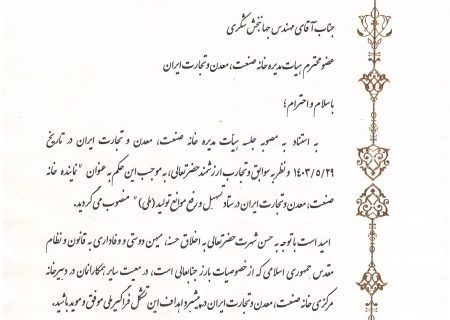 جناب آقای مهندس جهانبخش شکری
عضو محترم هیات مدیره خانه صنعت، معدن و تجارت ایران
با سلام و احترام؛
به استناد به مصوبه جلسه هیأت مدیره خانه صنعت، معدن و تجارت ایران در تاریخ
۱۴۰۳/۵/۲۹ و نظر به سوابق و تجارب ارزشمند حضرتعالی، به موجب این حکم به عنوان " نماینده خانه
صنعت، معدن و تجارت ایران در ستاد تسهیل و رفع موانع تولید (ملی) " منصوب می گردید.
امید است با توجه به حسن شهرت حضرتعالی به اخلاق حسنه، میهن دوستی و وفاداری به قانون و نظام
مقدس جمهوری اسلامی که از خصوصیات بارز جنابعالی است، در معیت سایر همکارانمان در دبیرخانه
مرکزی خانه صنعت، معدن و تجارت ایران در پیشبرد اهداف این تشکل فراگیر ملی موفق و موید باشید.